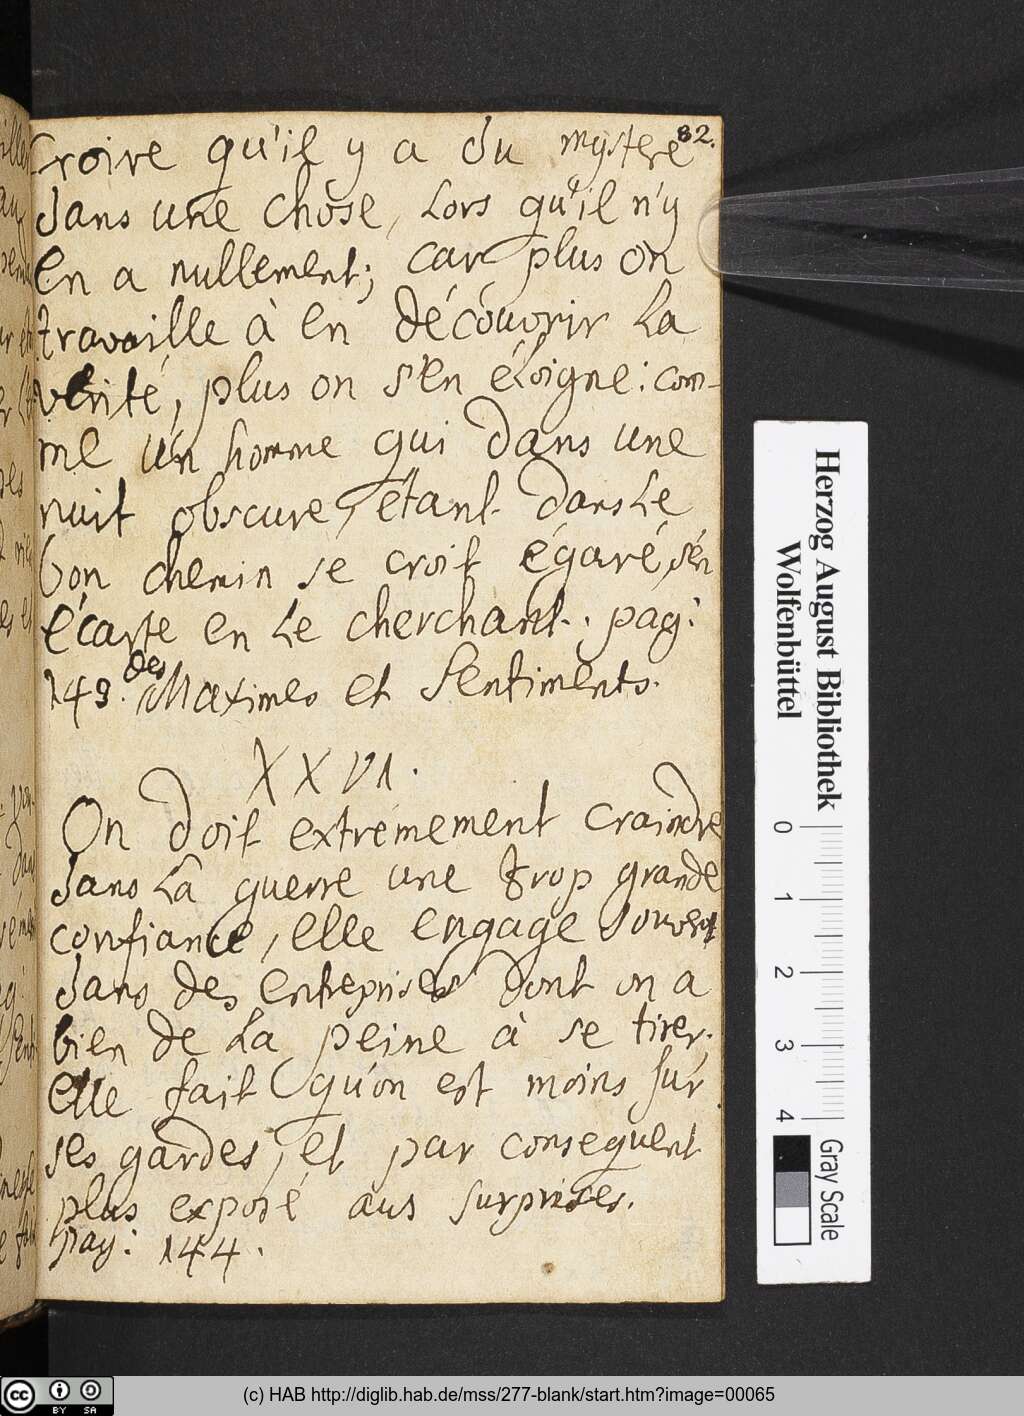 82.
Croire qu'il y a du mystere
dans une chose, Lors qu'il n'y
en a nullement; car plus on
travaille à en découvrir La
verité, plus on s'en éloigne: com-
me un homme qui dans une
nuit obscure, étant dans Le
bon chemin se croit égaré, s'én
écarte en Le cherchant. pag:
143. des Maximes et Sentiments.
XXVI.
On doit extremement craindre
dans La guerre une trop grande
confiance, elle engage souvent
dans des entreprises dont on a
bien de La peine à se tirer.
elle fait qu'on est moins sur
ses gardes, et par consequent
plus exposé aus surprises.
pag: 144.
Herzog August Bibliothek
Wolfenbüttel
0 1 2 3 4
Gray Scale
cc BY SA
(c) HAB http://diglib.hab.de/mss/277-blank/start.htm?image=00065